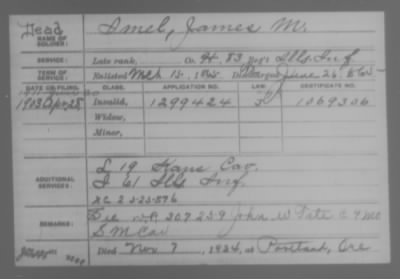 Dead
Imel, James M.
NAME OF SOLDIER:
SERVICE: Late rank, Co. H, 83 Reg't Ills. Inf.
TERM OF SERVICE: Enlisted Mch 15, 1865 Discharged June 26, 1865
DATE OF FILING. CLASS. APPLICATION NO. LAW. CERTIFICATE NO.
1903 Apr. 28 Invalid, 1299424 1069306
Widow,
Minor,
L 19 Kans Cav.
ADDITIONAL SERVICES: I 61 Ills Inf.
XC 2 323 576
REMARKS: See 207259 John W Tate C 9 Mo
S M Cav
Died Nov. 7, 1924, at Portland, Ore